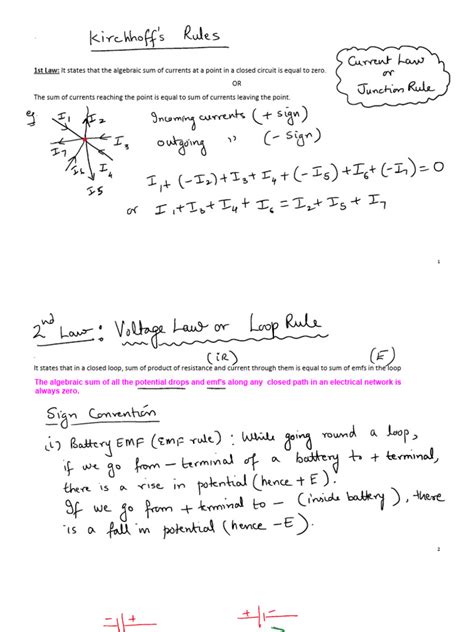 Kirchhoff's Rules
1st Law: It states that the algebraic sum of currents at a point in a closed circuit is equal to zero.
OR
The sum of currents reaching the point is equal to sum of currents leaving the point.
Current Law
or
Junction Rule
eg
I1 I2 I3 I4 I5 I6 I7
Incoming currents (+ sign)
outgoing " (- sign)
I1 + (-I2) + I3 + I4 + (-I5) + I6 + (-I7) = 0
or I1 + I3 + I4 + I6 = I2 + I5 + I7
1
2nd Law: Voltage Law or Loop Rule
(iR) (E)
It states that in a closed loop, sum of product of resistance and current through them is equal to sum of emfs in the loop
The algebraic sum of all the potential drops and emf's along any closed path in an electrical network is
always zero.
Sign Convention
(i) Battery EMF (EMF rule) : While going round a loop,
if we go from - terminal of a battery to + terminal,
there is a rise in potential (hence + E).
If we go from + terminal to - (inside battery), there
is a fall in potential (hence -E).
2
- +
+ -